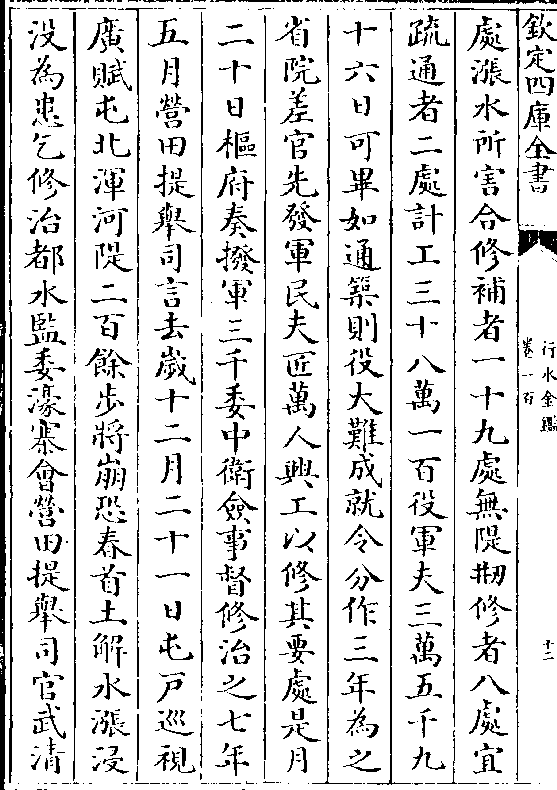 欽定四庫全書
行水金鑑
卷一百
十二
處漲水所害合修補者一十九處無隄刱修者八處宜
疏通者二處計工三十八萬一百役軍夫三萬五千九
十六日可畢如通築則役大難成就令分作三年為之
省院差官先發軍民夫匠萬人興工以修其要處是月
二十日樞府奏撥軍三千委中衛僉事督修治之七年
五月營田提舉司言去歲十二月二十一日屯戸巡視
廣賦屯北渾河隄二百餘步將崩恐春首土解水漲浸
没為患乞修治都水監委濠寨㑹營田提舉司官武清